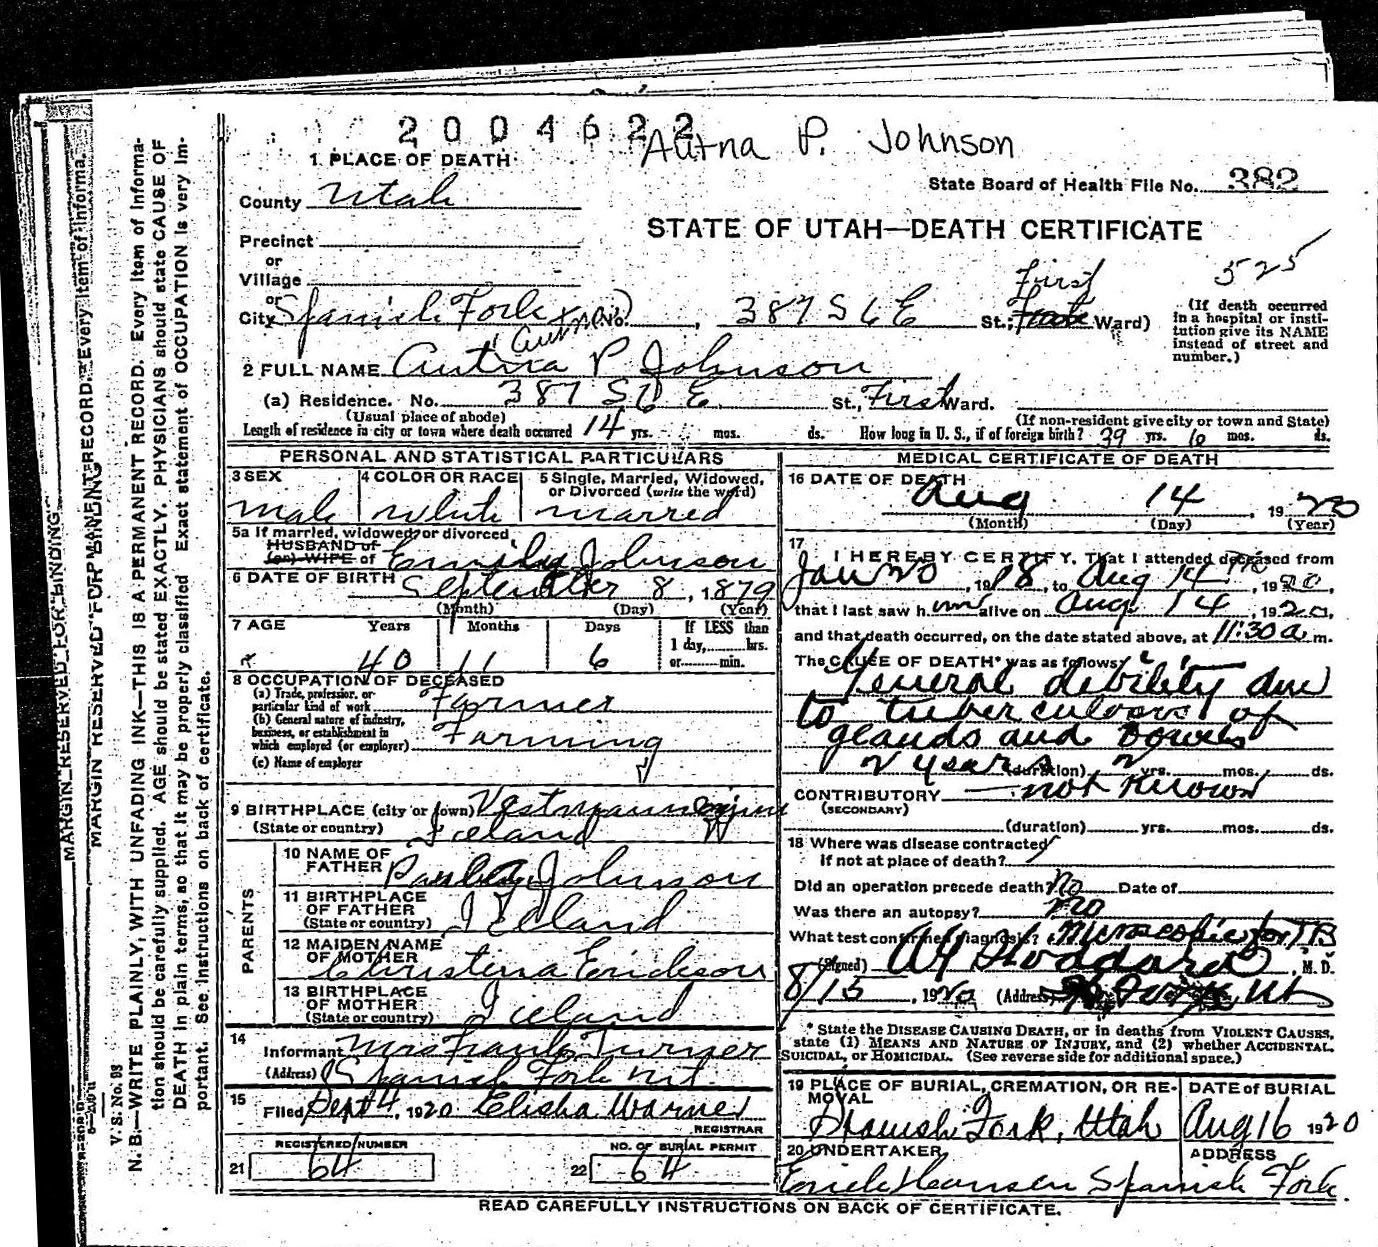 2004622
Autna P. Johnson
1 PLACE OF DEATH
State Board of Health File No. 382
County Utah
STATE OF UTAH—DEATH CERTIFICATE
Precinct
or
Village
First
525
or
City Spanish Fork No. , 387 S 6 E St.; Ward)
(If death occurred in a hospital or institution give its NAME instead of street and number.)
2 FULL NAME Autna P Johnson
(a) Residence. No. 387 S 6 E St., First Ward.
(Usual place of abode)
(If non-resident give city or town and State)
Length of residence in city or town where death occurred 14 yrs. mos. ds. How long in U. S., if of foreign birth? 39 yrs. 10 mos. ds.
PERSONAL AND STATISTICAL PARTICULARS
3 SEX
male
4 COLOR OR RACE
white
5 Single, Married, Widowed, or Divorced (write the word)
married
5a If married, widowed, or divorced
HUSBAND of
(or) WIFE of
Emily Johnson
6 DATE OF BIRTH September 8, 1879
(Month) (Day) (Year)
7 AGE Years Months Days If LESS than 1 day, hrs. or min.
40 11 6
8 OCCUPATION OF DECEASED
(a) Trade, profession, or particular kind of work Farmer
(b) General nature of industry, business, or establishment in which employed (or employer) Farming
(c) Name of employer
9 BIRTHPLACE (city or town)
(State or country) Iceland
PARENTS
10 NAME OF FATHER Johnson
11 BIRTHPLACE OF FATHER (State or country) Iceland
12 MAIDEN NAME OF MOTHER Christina Erickson
13 BIRTHPLACE OF MOTHER (State or country) Iceland
14
Informant Mrs Frank Turner
(Address) Spanish Fork Ut.
15
Filed Sept 4, 1920 Elisha Warner
REGISTRAR
REGISTERED NUMBER
21 64
NO. OF BURIAL PERMIT
22 64
MEDICAL CERTIFICATE OF DEATH
16 DATE OF DEATH
Aug 14, 1920
(Month) (Day) (Year)
17
I HEREBY CERTIFY, That I attended deceased from
Jan 20, 1918, to Aug 14, 1920,
that I last saw him alive on Aug. 14, 1920,
and that death occurred, on the date stated above, at 11:30 a. m.
The CAUSE OF DEATH* was as follows:
General debility due
to tuberculosis of
glands and bowels
2 years (duration) 2 yrs. mos. ds.
CONTRIBUTORY not known
(SECONDARY)
(duration) yrs. mos. ds.
18 Where was disease contracted
if not at place of death?
Did an operation precede death? No Date of
Was there an autopsy? no
What test confirmed diagnosis? Microscopic for TB
(Signed) Stoddard, M. D.
8/15, 1920 (Address) Ut
* State the DISEASE CAUSING DEATH, or in deaths from VIOLENT CAUSES, state (1) MEANS AND NATURE OF INJURY, and (2) whether ACCIDENTAL, SUICIDAL, or HOMICIDAL. (See reverse side for additional space.)
19 PLACE OF BURIAL, CREMATION, OR REMOVAL
Spanish Fork, Utah
DATE OF BURIAL
Aug 16 1920
20 UNDERTAKER
Erick Hansen
ADDRESS
Spanish Fork.
READ CAREFULLY INSTRUCTIONS ON BACK OF CERTIFICATE.
MARGIN RESERVED FOR BINDING
MARGIN RESERVED FOR BINDING
V. S. No. 98
N. B.—WRITE PLAINLY, WITH UNFADING INK—THIS IS A PERMANENT RECORD. Every item of information should be carefully supplied. AGE should be stated EXACTLY. PHYSICIANS should state CAUSE OF DEATH in plain terms, so that it may be properly classified. Exact statement of OCCUPATION is very important. See instructions on back of certificate.